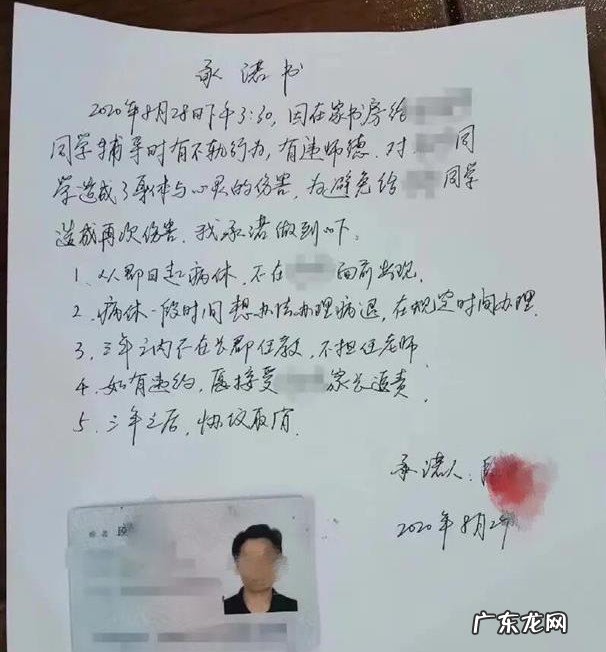 承诺书
2020年8月28日下午3:30,因在家书房给
同学辅导时有不轨行为,有违师德.对 同
学造成了身体与心灵的伤害,为避免给 同学
造成再次伤害.我承诺做到以下:
1、从即日起病休,不在 面前出现.
2、病休一段时间想办法办理病退,在规定时间办理.
3、三年之内不在长郡任教,不担任老师.
4、如有违约,愿接受 家长追责.
5、三年之后,协议取消.
承诺人:段
2020年8月2
姓名 段
广东龙网